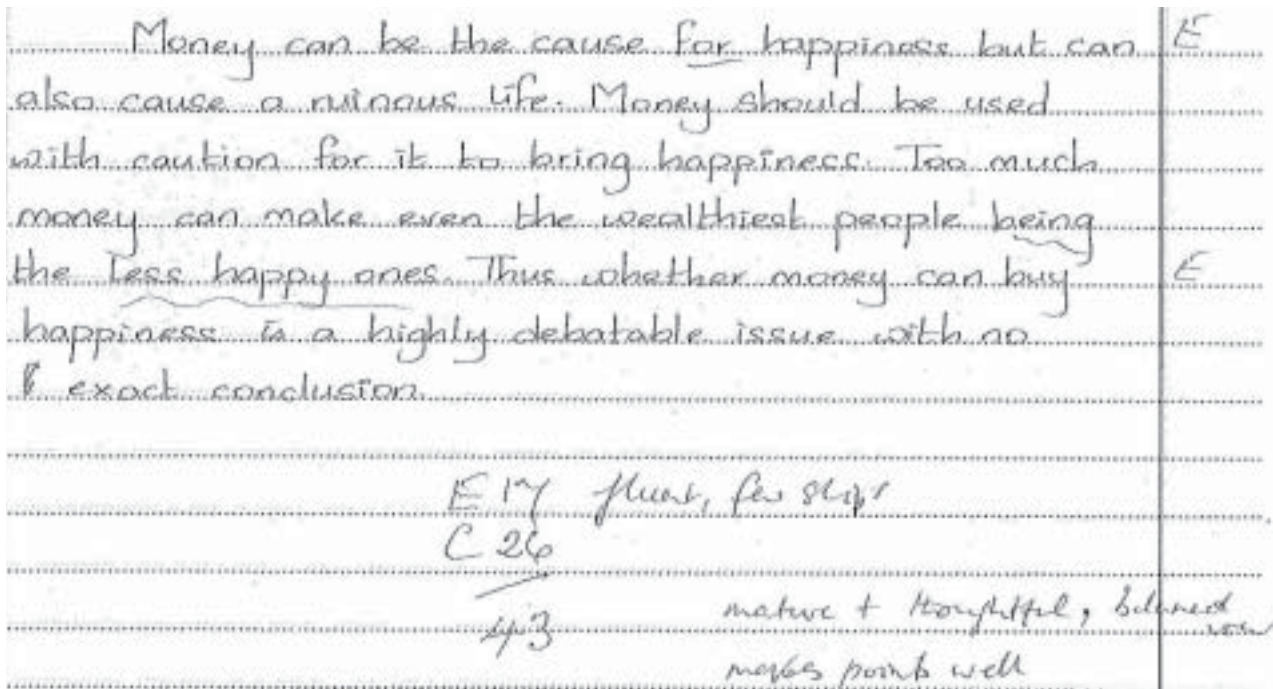 Money can be the cause for happiness but can E
also cause a ruinous life. Money should be used
with caution for it to bring happiness. Too much
money can make even the wealthiest people being
the less happy ones. Thus whether money can buy E
happiness is a highly debatable issue with no
exact conclusion.
E 17 fluent, few slips
C 26
43
mature + thoughtful, balanced view
makes points well